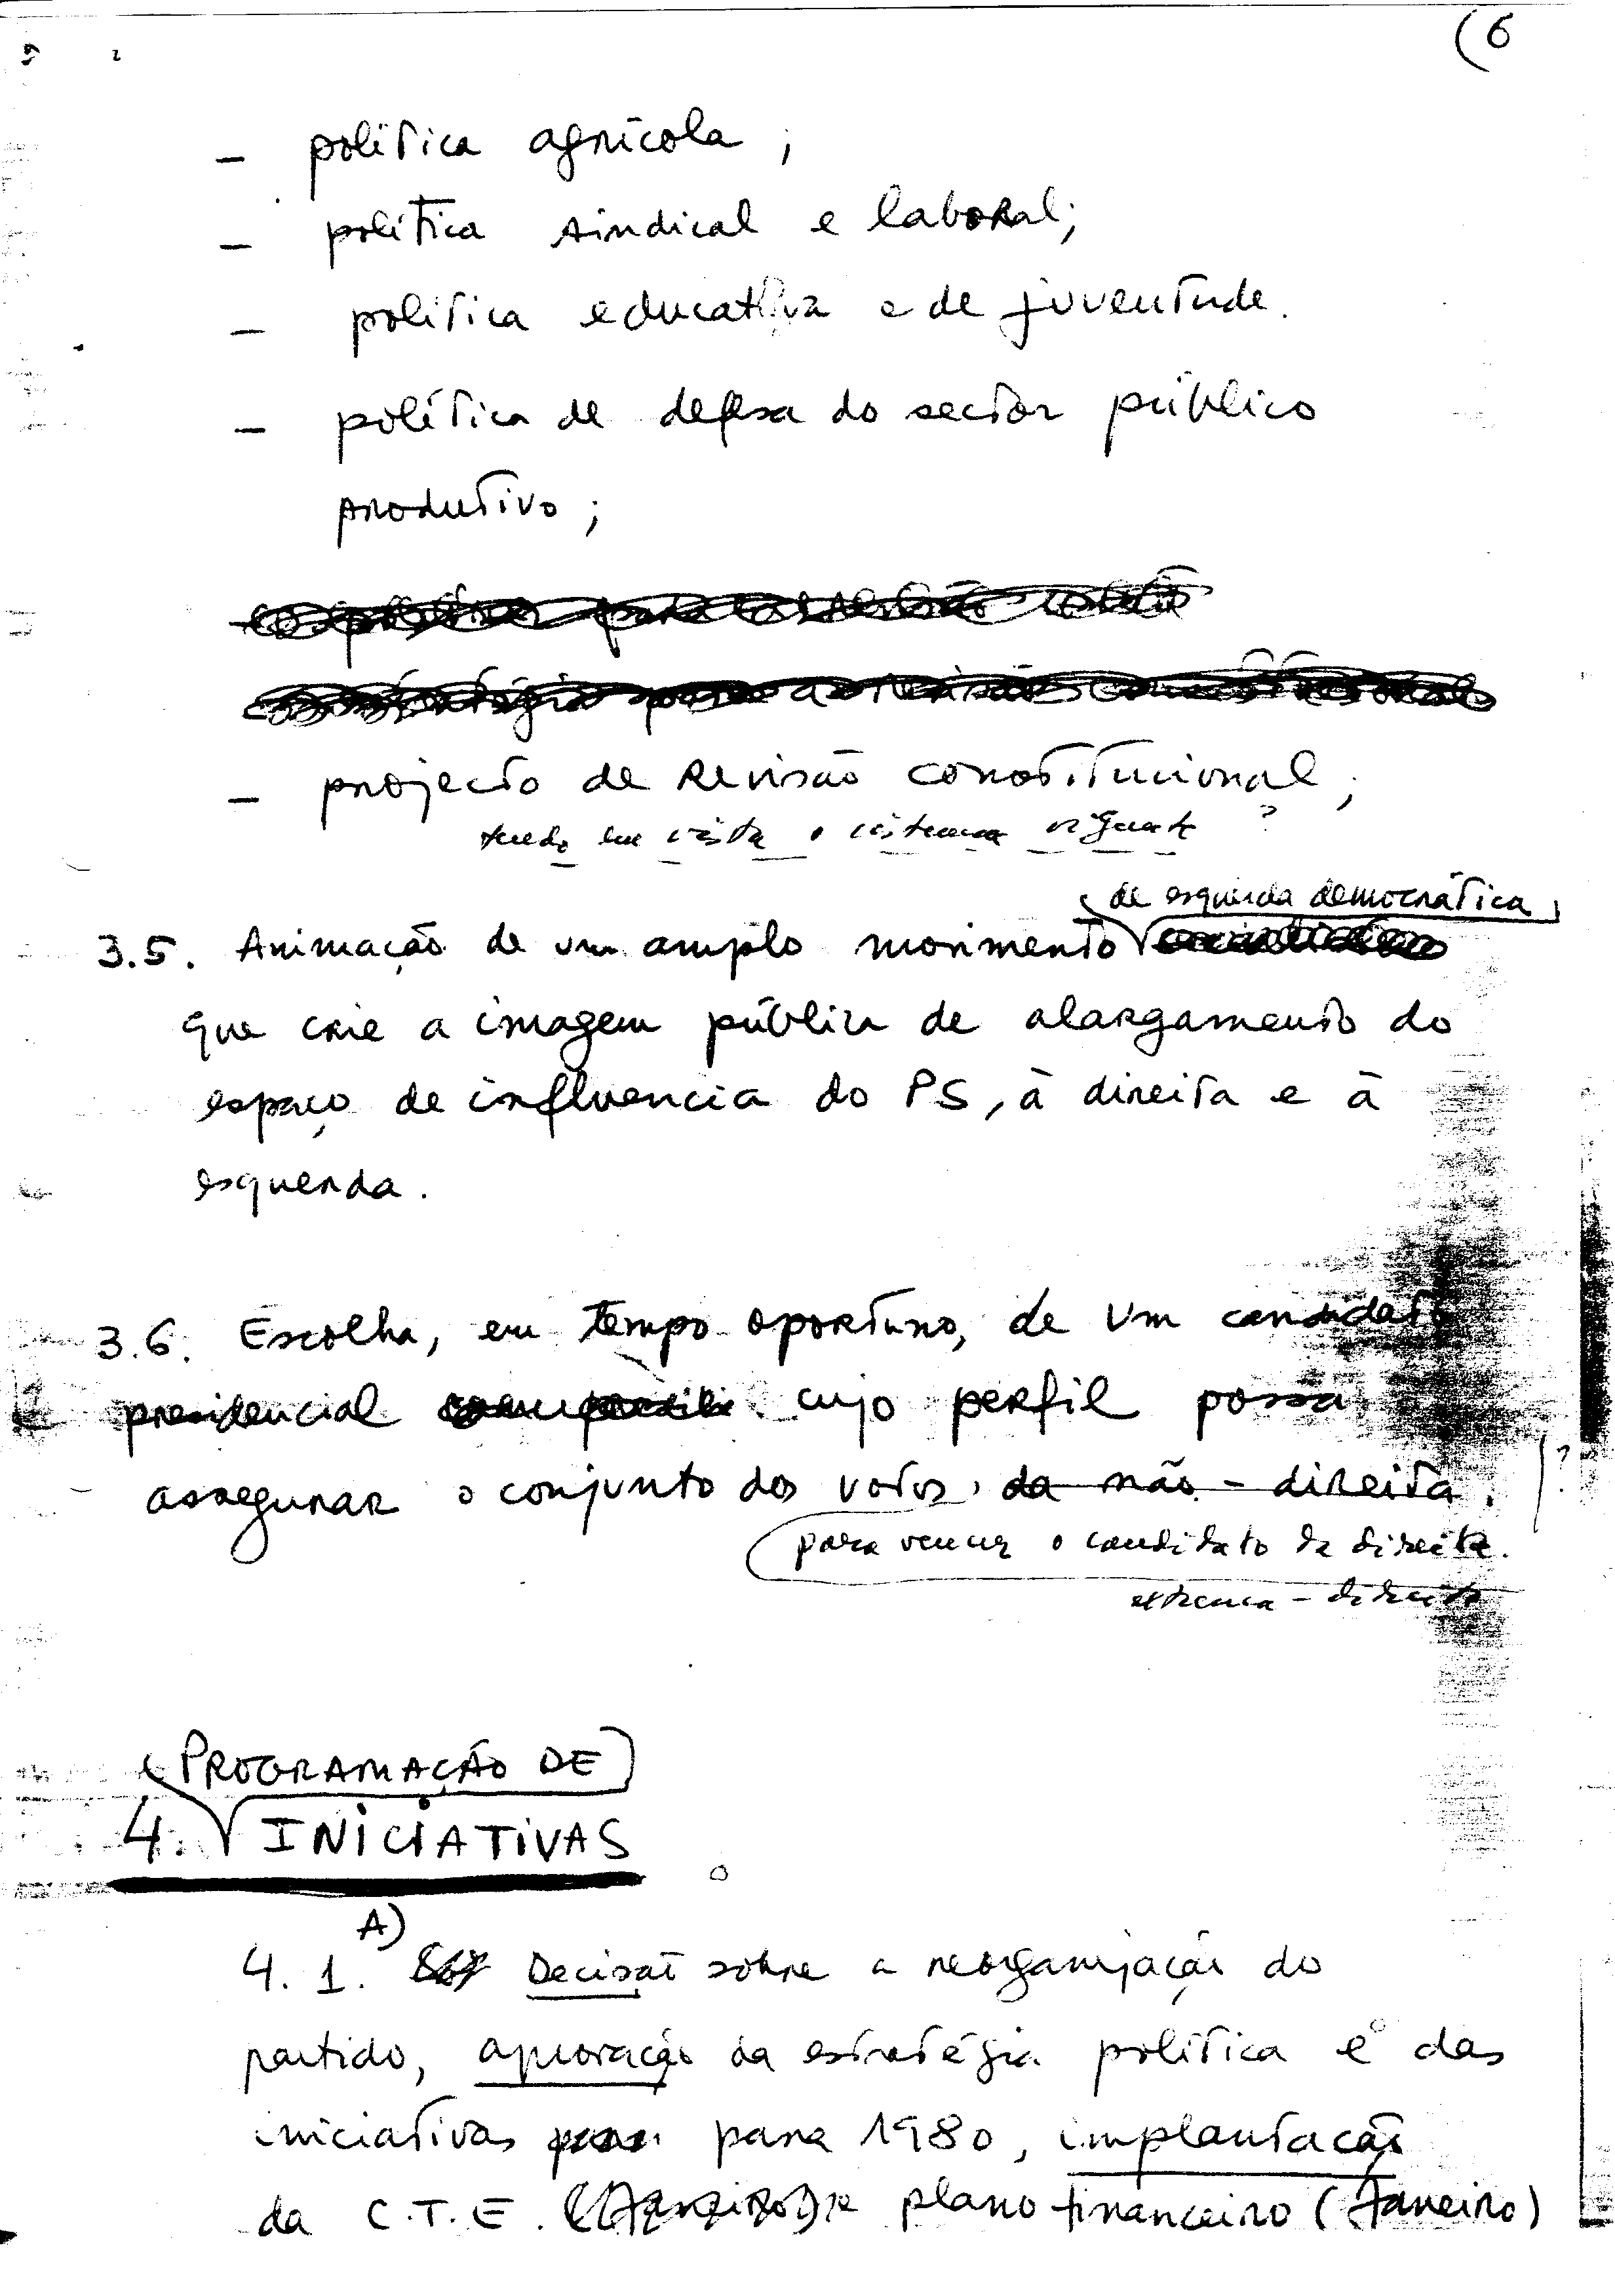 (6
- política agrícola;
- política sindical e laboral;
- política educativa e de juventude.
- política de defesa do sector público
produtivo;
- projecto de revisão constitucional;
tendo em vista o sistema vigente ?
de esquerda democrática
3.5. Animação de um amplo movimento
que crie a imagem pública de alargamento do
espaço de influencia do PS, à direita e à
esquerda.
3.6. Escolha, em tempo oportuno, de um candidato
presidencial cujo perfil possa
assegurar o conjunto dos votos, da não-direita. ?
para vencer o candidato da direita.
extrema-direita
PROGRAMAÇÃO DE
4. INICIATIVAS
A)
4.1. Decisão sobre a reorganização do
partido, aprovação da estratégia política e das
iniciativas para 1980, implantação
da C.T.E. e plano financeiro (Janeiro)